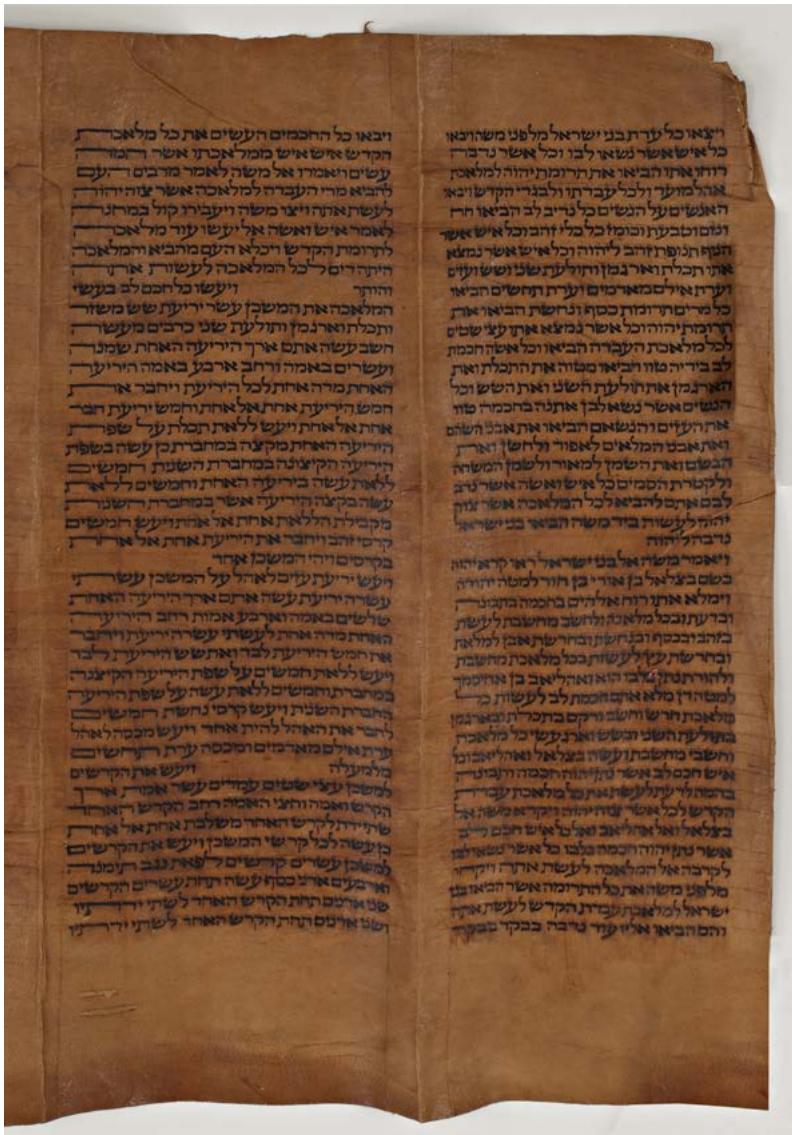 ויצאו כל עדת בני ישראל מלפני משה ויבאו
כל איש אשר נשאו לבו וכל אשר נדבה
רוחו אתו הביאו את תרומת יהוה למלאכת
אהל מועד ולכל עבדתו ולבגדי הקדש ויבאו
האנשים על הנשים כל נדיב לב הביאו חח
ונזם וטבעת וכומז כל כלי זהב וכל איש אשר
הניף תנופת זהב ליהוה וכל איש אשר נמצא
אתו תכלת וארגמן ותולעת שני ושש ועזים
וערת אילם מאדמים וערת תחשים הביאו
כל מרים תרומת כסף ונחשת הביאו את
תרומת יהוה וכל אשר נמצא אתו עצי שטים
לכל מלאכת העבדה הביאו וכל אשה חכמת
לב בידיה טוו ויביאו מטוה את התכלת ואת
הארגמן את תולעת השני ואת השש וכל
הנשים אשר נשא לבן אתנה בחכמה טוו
את העזים והנשאם הביאו את אבני השהם
ואת אבני המלאים לאפוד ולחשן ואת
הבשם ואת השמן למאור ולשמן המשחה
ולקטרת הסמים כל איש ואשה אשר נדב
לבם אתם להביא לכל המלאכה אשר צוה
יהוה לעשות ביד משה הביאו בני ישראל
נדבה ליהוה
ויאמר משה אל בני ישראל ראו קרא יהוה
בשם בצלאל בן אורי בן חור למטה יהודה
וימלא אתו רוח אלהים בחכמה בתבונה
ובדעת ובכל מלאכה ולחשב מחשבת לעשת
בזהב ובכסף ובנחשת ובחרשת אבן למלאת
ובחרשת עץ לעשות בכל מלאכת מחשבת
ולהורת נתן בלבו הוא ואהליאב בן אחיסמך
למטה דן מלא אתם חכמת לב לעשות כל
מלאכת חרש וחשב ורקם בתכלת ובארגמן
בתולעת השני ובשש וארג עשי כל מלאכה
וחשבי מחשבת ועשה בצלאל ואהליאב וכל
איש חכם לב אשר נתן יהוה חכמה ותבונה
בהמה לדעת לעשת את כל מלאכת עבדת
הקדש לכל אשר צוה יהוה ויקרא משה אל
בצלאל ואל אהליאב ואל כל איש חכם לב
אשר נתן יהוה חכמה בלבו כל אשר נשאו לבו
לקרבה אל המלאכה לעשת אתה ויקחו
מלפני משה את כל התרומה אשר הביאו בני
ישראל למלאכת עבדת הקדש לעשת אתה
והם הביאו אליו עוד נדבה בבקר בבקר
ויבאו כל החכמים העשים את כל מלאכת
הקדש איש איש ממלאכתו אשר המה
עשים ויאמרו אל משה לאמר מרבים העם
להביא מדי העבדה למלאכה אשר צוה יהוה
לעשת אתה ויצו משה ויעבירו קול במחנה
לאמר איש ואשה אל יעשו עוד מלאכה
לתרומת הקדש ויכלא העם מהביא והמלאכה
היתה דים לכל המלאכה לעשות אתה
והותר ויעשו כל חכם לב בעשי
המלאכה את המשכן עשר יריעת שש משזר
ותכלת וארגמן ותולעת שני כרבים מעשה
חשב עשה אתם ארך היריעה האחת שמנה
ועשרים באמה ורחב ארבע באמה היריעה
האחת מדה אחת לכל היריעת ויחבר את
חמש היריעת אחת אל אחת וחמש יריעת חבר
אחת אל אחת ויעש ללאת תכלת על שפת
היריעה האחת מקצה במחברת כן עשה בשפת
היריעה הקיצונה במחברת השנית חמשים
ללאת עשה ביריעה האחת וחמשים ללאת
עשה בקצה היריעה אשר במחברת השנית
מקבילת הללאת אחת אל אחת ויעש חמשים
קרסי זהב ויחבר את היריעת אחת אל אחת
בקרסים ויהי המשכן אחד
ויעש יריעת עזים לאהל על המשכן עשתי
עשרה יריעת עשה אתם ארך היריעה האחת
שלשים באמה וארבע אמות רחב היריעה
האחת מדה אחת לעשתי עשרה יריעת ויחבר
את חמש היריעת לבד ואת שש היריעת לבד
ויעש ללאת חמשים על שפת היריעה הקיצנה
במחברת וחמשים ללאת עשה על שפת היריעה
החברת השנית ויעש קרסי נחשת חמשים
לחבר את האהל להית אחד ויעש מכסה לאהל
ערת אילם מאדמים ומכסה ערת תחשים
מלמעלה ויעש את הקרשים
למשכן עצי שטים עמדים עשר אמות ארך
הקרש ואמה וחצי האמה רחב הקרש האחד
שתי ידת לקרש האחד משלבת אחת אל אחת
כן עשה לכל קרשי המשכן ויעש את הקרשים
למשכן עשרים קרשים לפאת נגב תימנה
וארבעים אדני כסף עשה תחת עשרים הקרשים
שני אדנים תחת הקרש האחד לשתי ידתיו
ושני אדנים תחת הקרש האחד לשתי ידתיו